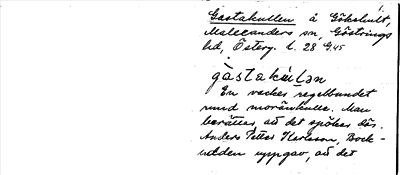 Gastakullen å Gökshult,
Malexanders sn, Göstrings
hd, Österg. l. 28 9/45
gàstakúlən
En vacker regelbundet
rund moränkulle. Man
berättar att det spökar där.
Anders Petter Karlsson, Bock-
udden uppgav, att det